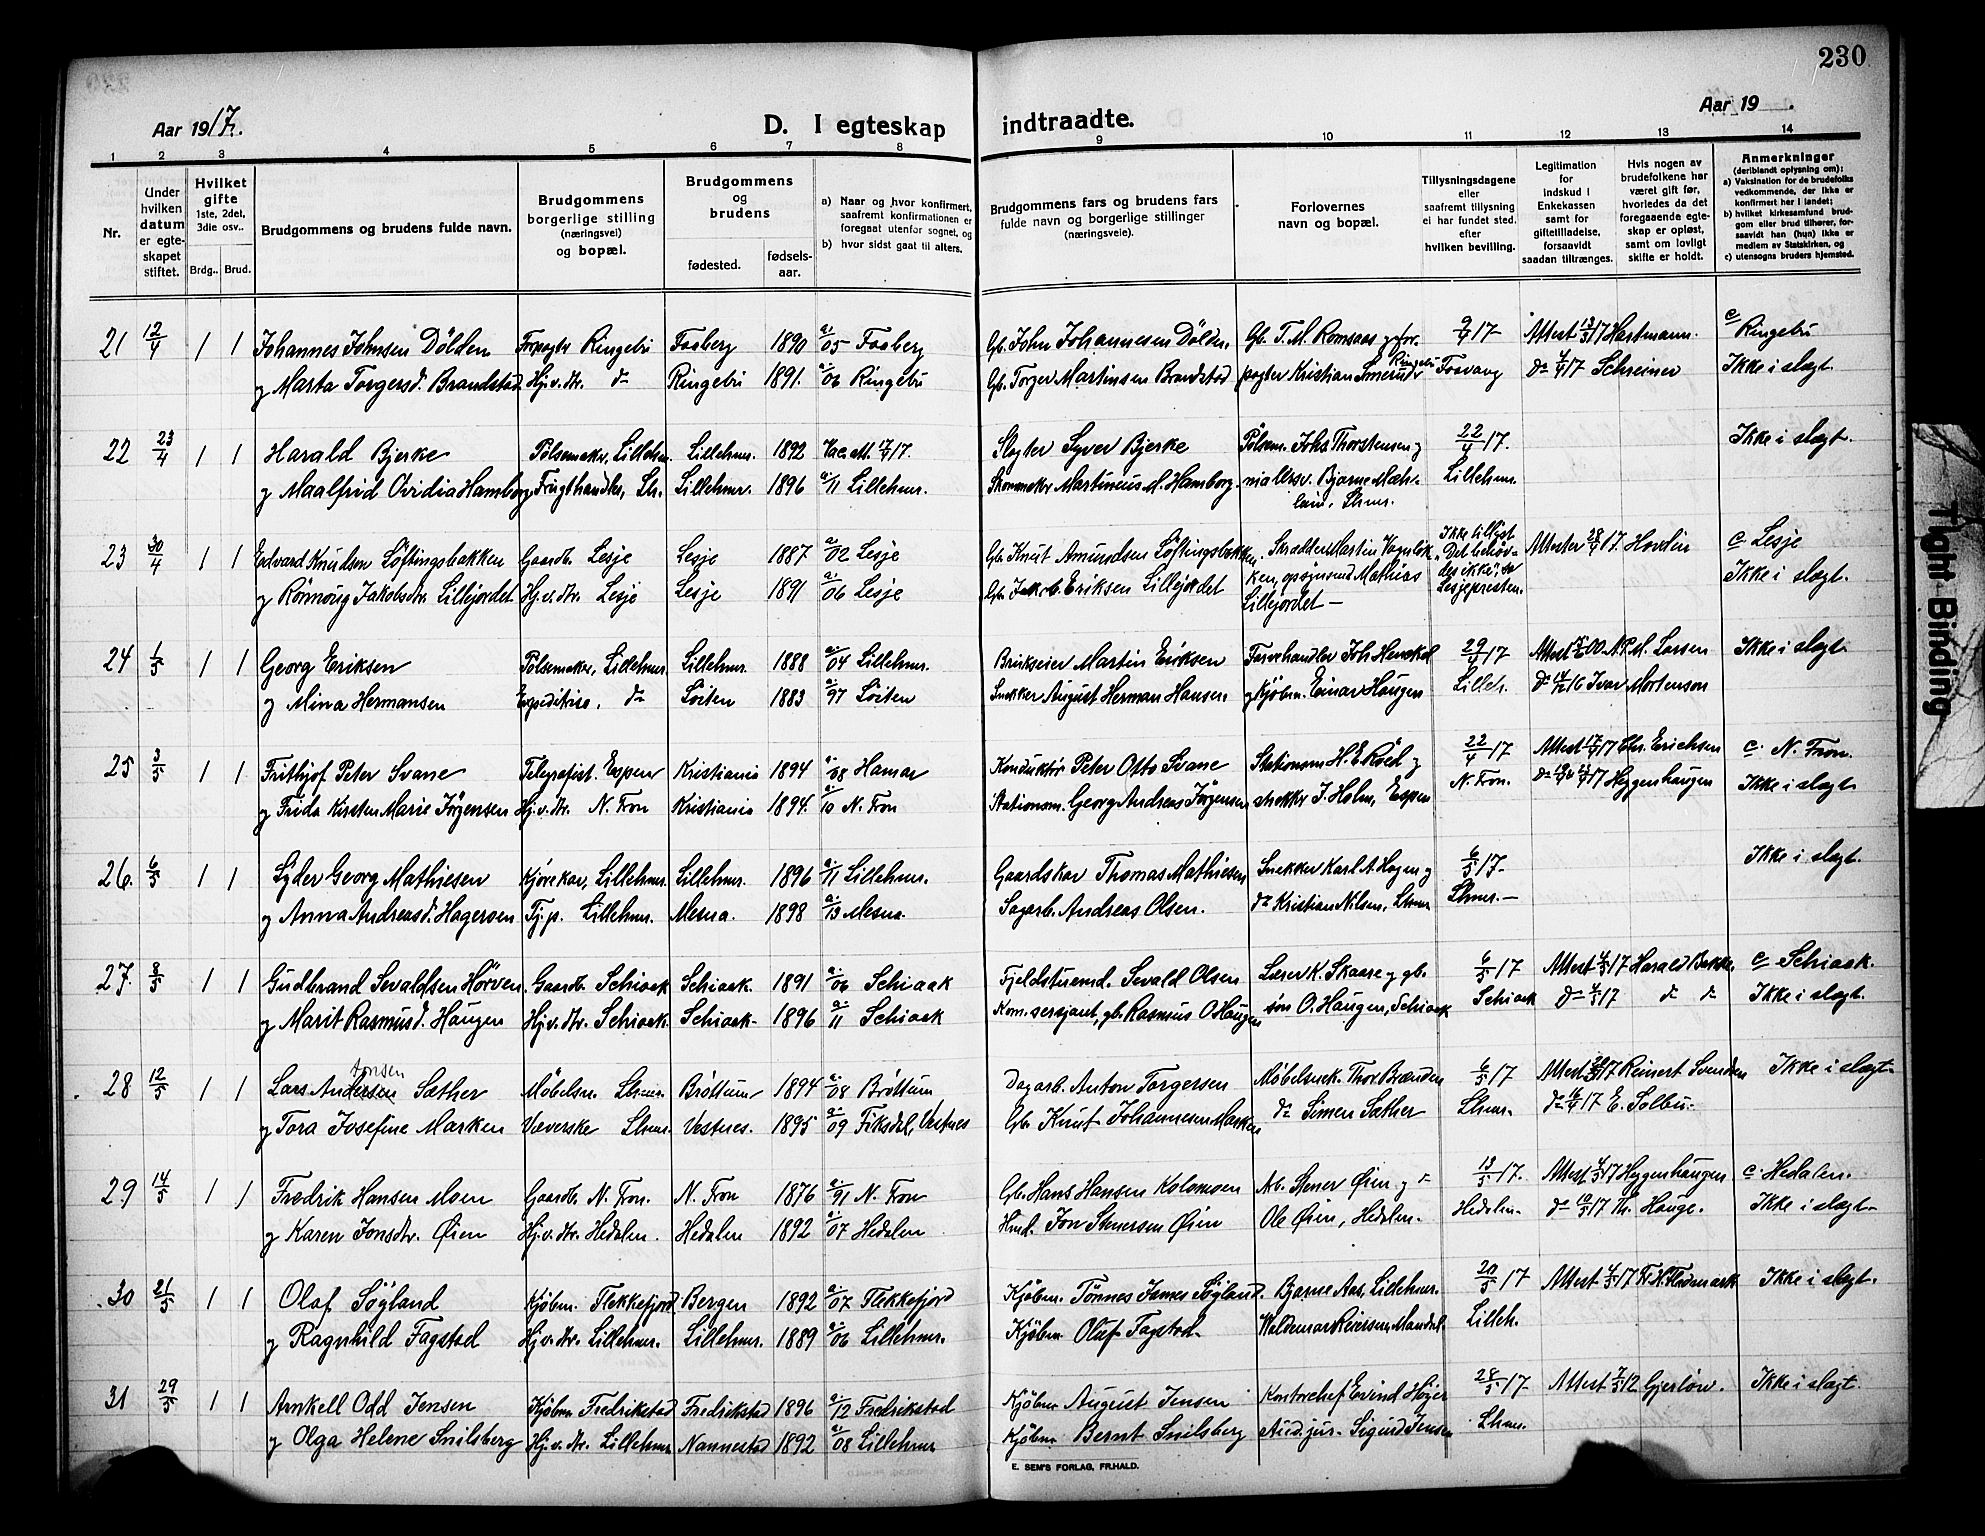 230
Aar 1917.
D. I egteskap indtraadte.
Aar 19 .
1 2 3 4 5 6 7 8 9 10 11 12 13 14
Nr.
Under hvilken datum er egteskapet stiftet.
Hvilket gifte 1ste, 2det, 3die osv.. Brdg.. Brud.
Brudgommens og brudens fulde navn.
Brudgommens borgerlige stilling (næringsvei) og bopæl.
Brudgommens og brudens fødested. fødselsaar.
a) Naar og hvor konfirmert, saafremt konfirmationen er foregaat utenfor sognet, og
b) hvor sidst gaat til alters.
Brudgommens fars og brudens fars fulde navn og borgerlige stillinger (næringsveie).
Forlovernes navn og bopæl.
Tillysningsdagene eller saafremt tillysning ei har fundet sted. efter hvilken bevilling.
Legitimation for indskud i Enkekassen samt for giftetilladelse, forsaavidt saadan tiltrænges.
Hvis nogen av brudefolkene har været gift før, hvorledes da det foregaaende egteskap er opløst, samt om lovlig skifte er holdt.
Anmerkninger (deriblandt oplysning om):
a) Vaksination for de brudefolks vedkommende, der ikke er konfirmert her i landet;
b) hvilket kirkesamfund brudgom eller brud tilhører, forsaavidt han (hun) ikke er medlem av Statskirken, og
c) utensogns bruders hjemsted.
21 12/4 1 1 Johannes Johnsen Dölden Forpagter Ringebu Faaberg 1890 a/05 Faaberg Gb. John Johannesen Dölden. Gb. T. M. Romsaas og for- 9/4 17 Attest 13/3 17 Hartmann. c Ringebu
og Marta Torgersd. Brandstad Hj.v.dtr. do Ringebu 1891. a/06 Ringebu Gb. Torger Martinsen Brandstad pagter Kristian Smerud, Ringebu Faavang do 4/4 17 Schreiner Ikke i slægt.
22 23/4 1 1 Harald Bjerke Pölsemaker, Lillehmr. Lillehmr. 1892 Vac. att. 17/4 17. Slagter Syver Bjerke Pölsem. Johs Thorstensen og 22/4 17. Ikke i slægt.
og Maalfrid Ovidia Hamborg Frugthandler, Lhr. Lillehmr. 1896 a/11 Lillehmr. Skommakr Martinius M. Hamborg. Bjarne Mæhlum, Lhmr. Lillehmr.
23 30/4 1 1 Edvard Knudsen Löftingsbakken Gaardbr. Lesje Lesje 1887 a/02 Lesje Gb. Knut Amundsen Löftingsbakken Skrædder Martin 1kke tillyst Attester 28/4 17. Hovdin c Lesje
og Rönnaug Jakobsdtr. Lillejordet Hj.v.dtr. Lesje Lesje 1891 a/06 Lesje Gb. Jakob Eriksen Lillejordet Mathias Lillejordet — "Det behövdes ikke", sa Lesjepresten. Ikke i slægt.
24 1/5 1 1 Georg Eriksen Pölsemaker, Lillehmr. Lillehmr. 1888 a/04 Lillehmr. Brukseier Martin Eriksen Farvehandler Joh. Henckel 29/4 17 Attest 00 N. P. M. Larsen Ikke i slægt.
og Mina Hermansen Expeditrise, do Löiten 1883 a/97 Löiten Snekker August Herman Hansen. og Kjöbm. Einar Haugen Lilleh. do 14/12 16 Ivar Mortenson
25 3/5 1 1 Frithjof Peter Svane Telegrafist. Espen Kristiania 1894 a/08 Hamar Konduktör Peter Otto Svane Stationsm. H. E. Röed og 22/4 17 Attest 17/4 17 Chr. Erichsen c. N. Fron.
og Frida Kirsten Marie Jörgensen Hj.v.dtr. N. Fron Kristiania 1894. a/10 N. Fron Stationsm. Georg Andreas Jörgensen snekker J. Holm, Espen N. Fron. Heggenhaugen Ikke i slægt
26. 6/5 1 1 Syder Georg Mathiesen Kjörekar, Lillehmr. Lillehmr. 1896 a/11 Lillehmr. Gaardskar Thomas Mathiesen Snekker Karl A. Hagen og 6/5 17- Ikke i slægt.
og Anna Andreasd. Hageroen Tj.p. Lillehmr. Mesna. 1898 a/13 Mesna. Sagarb. Andreas Olsen. do Kristian Nilsen, Lhmr Lhmr. —
27. 8/5 1 1 Gudbrand Sevaldsen Hörven Gaardb. Schiaak Schiaak. 1891 a/06 Schiaak Fjeldstuemd. Sevald Olsen Lærer K. Skaare og gb. 6/5 17 Attest 4/5 17 Harald Bakke. c Schiaak.
og Marit Rasmusd. Haugen Hj.v.dtr. Schiaak. Schiaak- 1896 a/11 Schiaak Kom. sersjant, gb. Rasmus O Haugen sön O. Haugen, Schiaak Schiaak do 4/5 17 do do Ikke i slægt.
28 12/5 1 1 Lars Andersen Antonsen Sæther Möbelsn. Lhmr. Bröttum 1894 a/08 Bröttum Dagarb. Anton Torgersen Möbelsnek. Thor Brænden 6/5 17 Reinert Svendsen Ikke i slægt
og Tora Josefine Marken Væverske Lhmr. Vestnes. 1895 a/09 Fiksdal, Vestnes Gb. Knut Johannesen Marken do Simen Sæther Lhmr. do 16/4 17 E. Solbu.
29 14/5 1 1 Fredrik Hansen Moen Gaardb. N. Fron. N. Fron 1876 a/91 N. Fron Gb. Hans Hansen Kolomoen Arb. Stener Öien og do 13/5 17. Attest 4/5 17 Heggenhaugen c. Hedalen.
og Karen Jonsdtr. Öien Hj.v.dtr. Hedalen. Hedalen 1892 a/07 Hedalen Hmd. Jon Stenersen Öien Ole Öien, Hedalen. Hedalen- do 10/5 17 Th. Hauge. Ikke i slægt-
30 21/5 1 1 Olaf Sögland Kjöbm. Flekkefjord Bergen 1892 a/07 Flekkefjord Kjöbm. Tönnes James Sögland. Bjarne Aas, Lillehmr. 20/5 17 Attest 4/5 17 Flodmark Ikke i slægt.
og Ragnhild Fagstad Hj.v.dtr. Lillehmr. Lillehmr. 1889 a/06 Lillehmr. Kjöbm. Oluf Fagstad. Valdemar Reiersen Mandal. Lilleh.
31 29/5 1 1 Arnkell Odd Jensen Kjöbm Fredrikstad Fredrikstad 1896 a/12 Fredrikstad Kjöbm August Jensen Kontorchef Eivind Höyer 28/5 17 Attest 7/5 12 Gjerlöw. Ikke i slægt.
og Olga Helene Snilsberg Hj.v.dtr. Lillehmr Nannestad 1892 a/08 Lillehmr Kjöbm Bernt Snilsberg Aud. jur. Sigurd Jensen Lhmr.
E. SEM'S FORLAG, FR.HALD.
Tight Binding